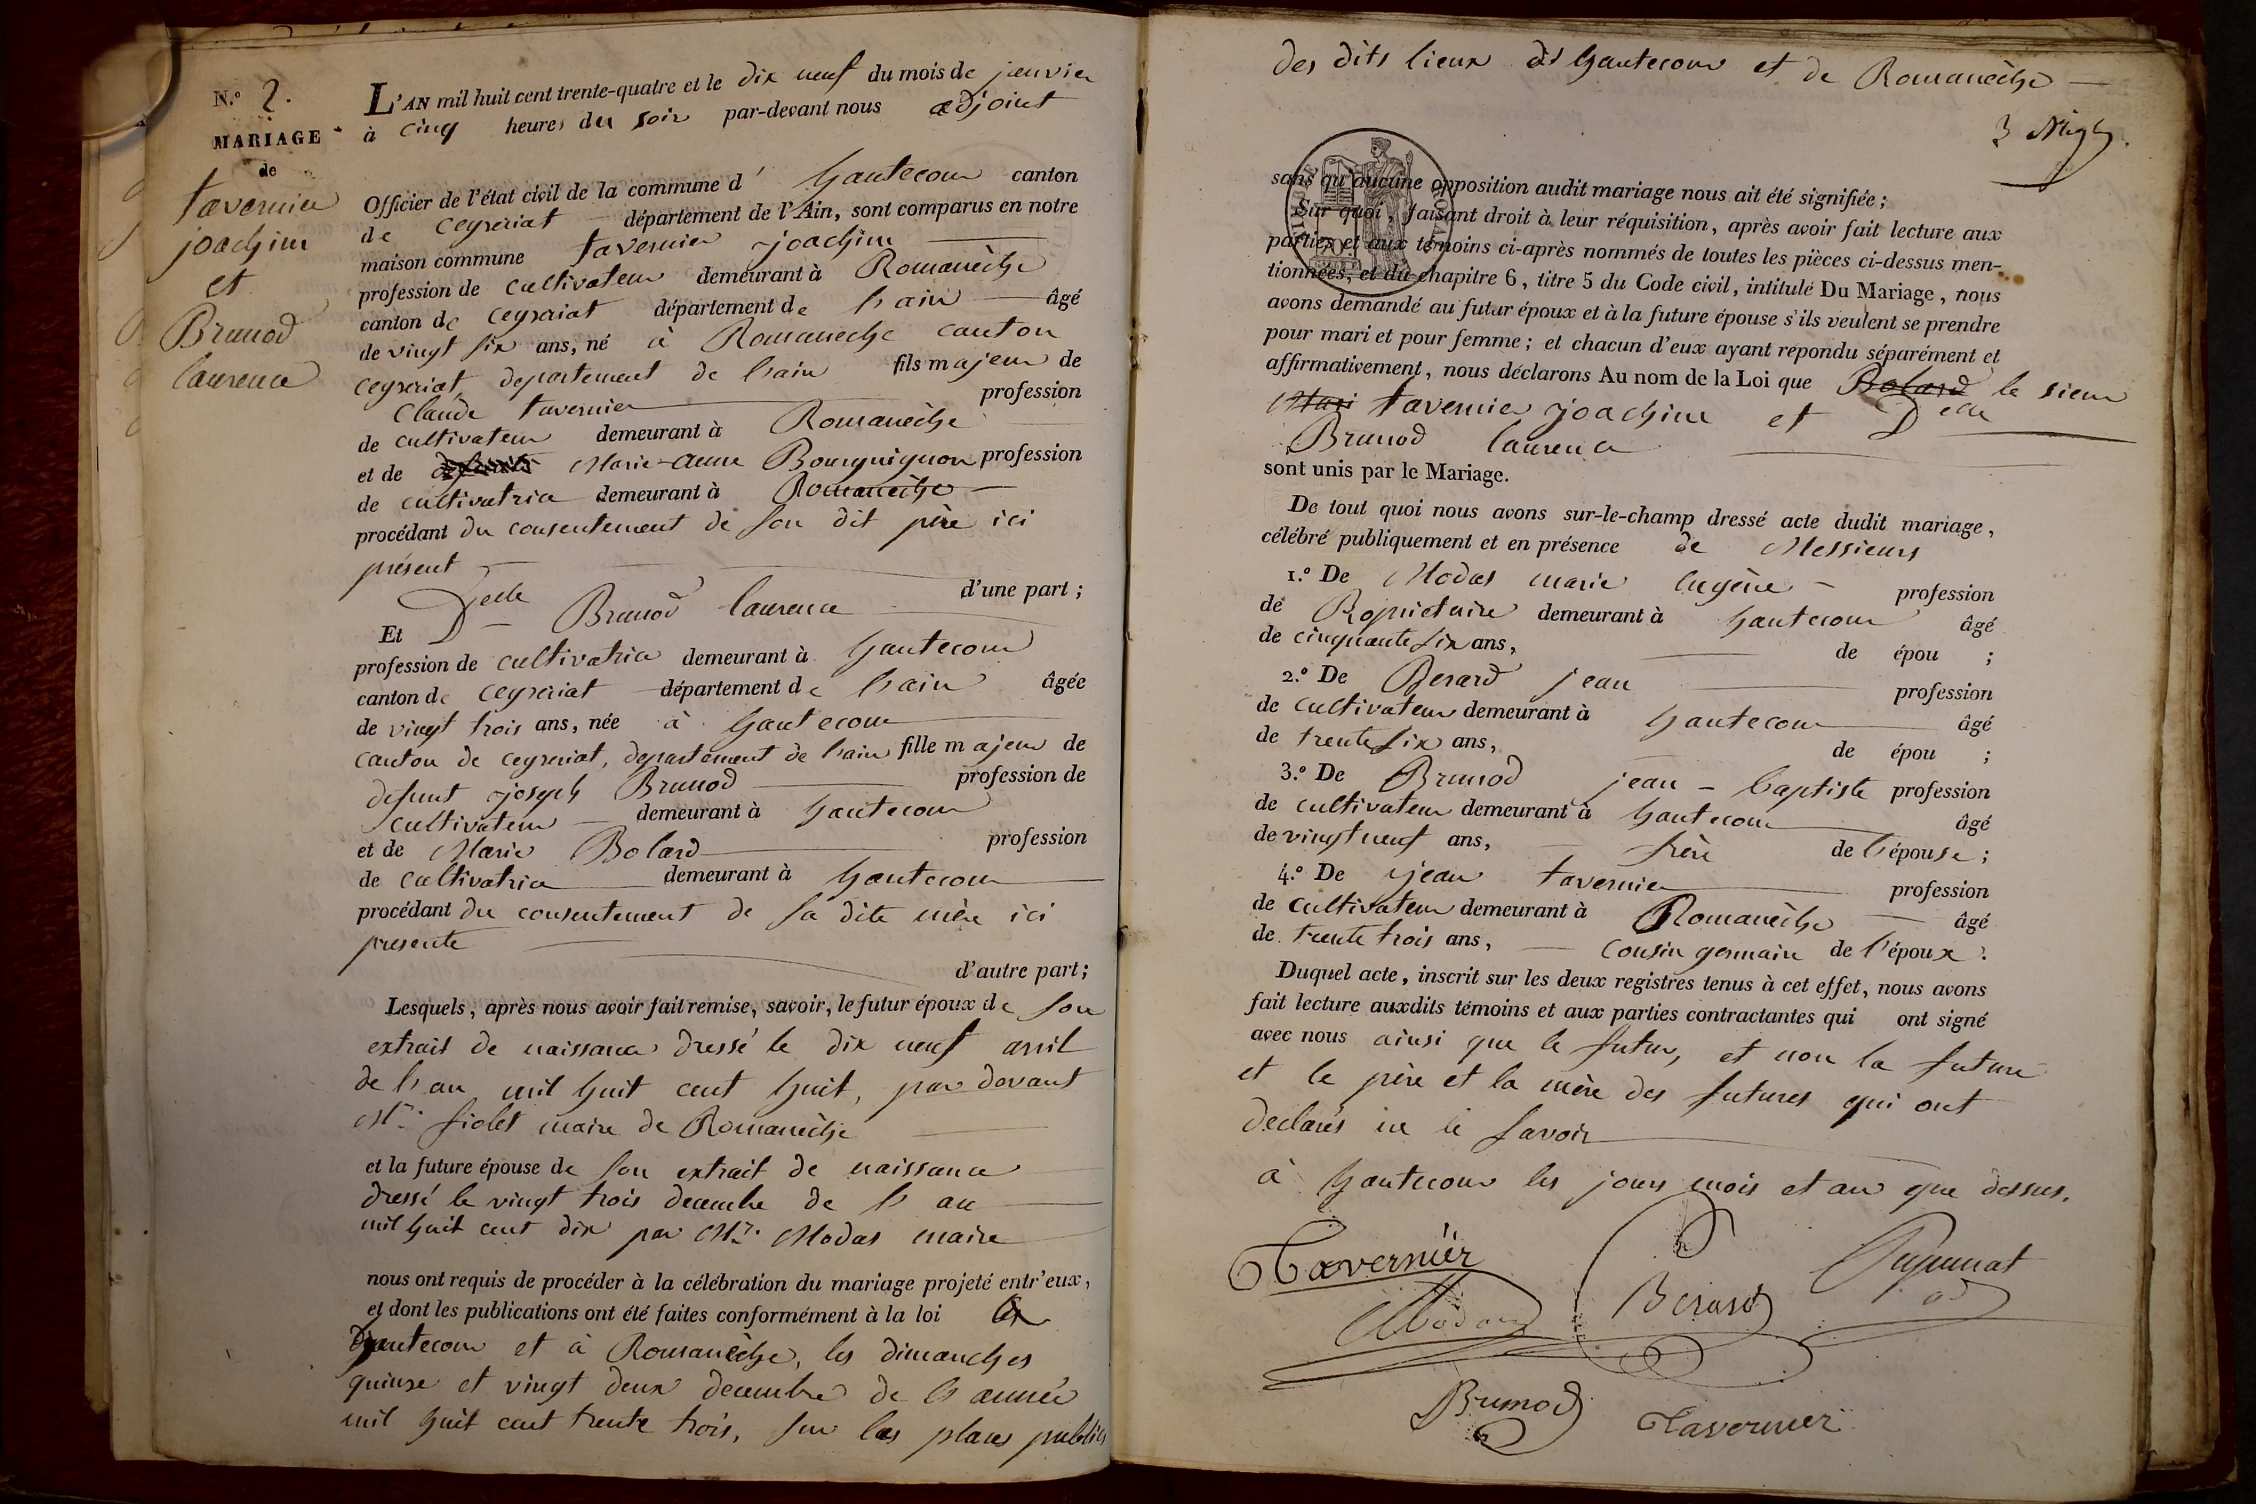 N.º 2.
MARIAGE
de
tavernier
joachim
et
Brunod
laurence
L'AN mil huit cent trente-quatre et le dix neuf du mois de janvier
à cinq heures du soir par-devant nous adjoint
Officier de l'état civil de la commune d' hautecour canton
de ceyzeriat département de l'Ain, sont comparus en notre
maison commune tavernier joachim
profession de cultivateur demeurant à Romanèche
canton de ceyzeriat département de l'ain âgé
de vingt six ans, né à Romaneche canton
ceyzeriat, departement de l'ain fils majeur de
Claude tavernier profession
de cultivateur demeurant à Romanèche
et de Marie-anne Bourguignon profession
de cultivatrice demeurant à Romanèche
procédant du consentement de son dit père ici
présent
d'une part ;
Et Delle Brunod laurence
profession de cultivatrice demeurant à hautecour
canton de ceyzeriat département de l'ain âgée
de vingt trois ans, née à hautecour
canton de ceyzeriat, departement de l'ain fille majeur de
defunt joseph Brunod profession de
cultivateur demeurant à hautecour
et de Marie Bolard profession
de cultivatrice demeurant à hautecour
procédant du consentement de sa dite mère ici
presente
d'autre part ;
Lesquels, après nous avoir fait remise, savoir, le futur époux de son
extrait de naissance dressé le dix neuf avril
de l'an mil huit cent huit, par devant
Mr. fiolet maire de Romanèche
et la future épouse de son extrait de naissance
dressé le vingt trois decembre de l'an
mil huit cent dix par Mr. Modas maire
nous ont requis de procéder à la célébration du mariage projeté entr'eux,
et dont les publications ont été faites conformément à la loi
hautecour et à Romanèche, les dimanches
quinze et vingt deux decembre de l'année
mil huit cent trente trois, sur les places publics
des dits lieux d' hautecour et de Romanèche
sans qu'aucune opposition audit mariage nous ait été signifiée ;
Sur quoi, faisant droit à leur réquisition, après avoir fait lecture aux
parties et aux témoins ci-après nommés de toutes les pièces ci-dessus men-
tionnées, et du chapitre 6, titre 5 du Code civil, intitulé Du Mariage, nous
avons demandé au futur époux et à la future épouse s'ils veulent se prendre
pour mari et pour femme ; et chacun d'eux ayant repondu séparément et
affirmativement, nous déclarons Au nom de la Loi que Bolard le sieur
tavernier joachim et Delle
Brunod laurence
sont unis par le Mariage.
De tout quoi nous avons sur-le-champ dressé acte dudit mariage,
célébré publiquement et en présence de Messieurs
1.º De Modas marie Eugène profession
de Propriétaire demeurant à hautecour âgé
de cinquante six ans, de épou ;
2.º De Berard jean profession
de cultivateur demeurant à hautecour âgé
de trente six ans, de épou ;
3.º De Brunod jean - baptiste profession
de cultivateur demeurant à hautecour âgé
de vingt neuf ans, frère de l'épouse ;
4.º De jean tavernier profession
de cultivateur demeurant à Romanèche âgé
de trente trois ans, cousin germain de l'époux.
Duquel acte, inscrit sur les deux registres tenus à cet effet, nous avons
fait lecture auxdits témoins et aux parties contractantes qui ont signé
avec nous ainsi que le futur, et non la future
et le père et la mère des futures qui ont
declarés ne le savoir
à hautecour les jours mois et an que dessus.
Tavernier
Modas
Berard
Brunod
Tavernier